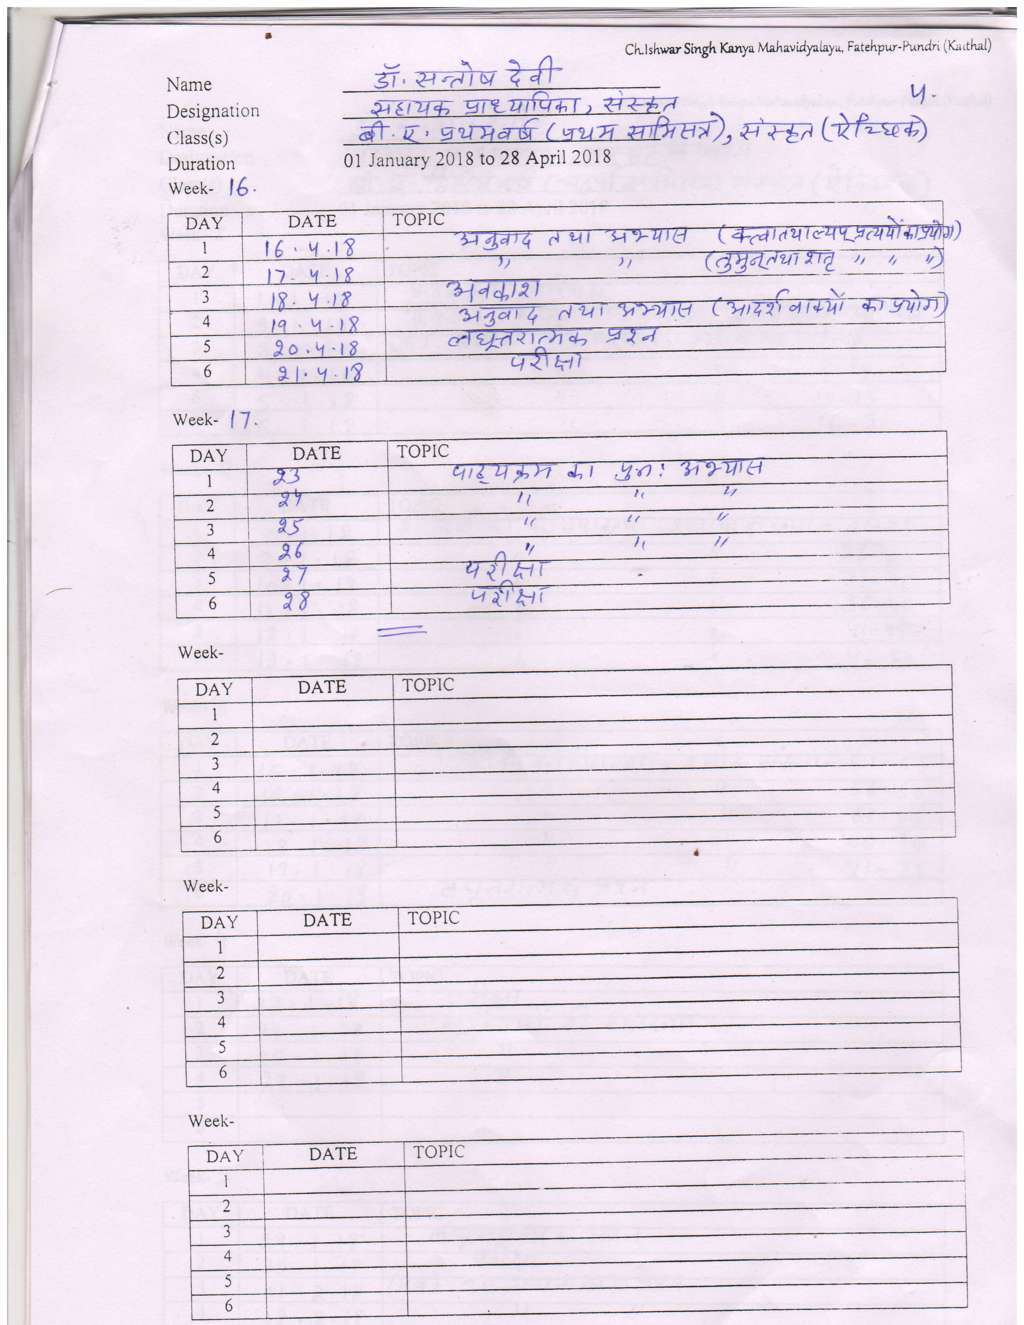 Ch.Ishwar Singh Kanya Mahavidyalaya, Fatehpur-Pundri (Kaithal)
Name डॉ. सन्तोष देवी
Designation सहायक प्राध्यापिका, संस्कृत ५.
Class(s) बी. ए. प्रथमवर्ष (प्रथम सामिसत्र), संस्कृत (ऐच्छिक)
Duration 01 January 2018 to 28 April 2018
Week- 16.
DAY DATE TOPIC
1 16.4.18 अनुवाद तथा अभ्यास (क्त्वा तथा ल्यप् प्रत्ययों का प्रयोग)
2 17.4.18 " " (तुमुन् तथा शतृ " " ")
3 18.4.18 अवकाश
4 19.4.18 अनुवाद तथा अभ्यास (आदर्श वाक्यों का प्रयोग)
5 20.4.18 लघूत्तरात्मक प्रश्न
6 21.4.18 परीक्षा
Week- 17.
DAY DATE TOPIC
1 23 पाठ्यक्रम का पुन: अभ्यास
2 24 " " "
3 25 " " "
4 26 " " "
5 27 परीक्षा
6 28 परीक्षा
Week-
DAY DATE TOPIC
1
2
3
4
5
6
Week-
DAY DATE TOPIC
1
2
3
4
5
6
Week-
DAY DATE TOPIC
1
2
3
4
5
6